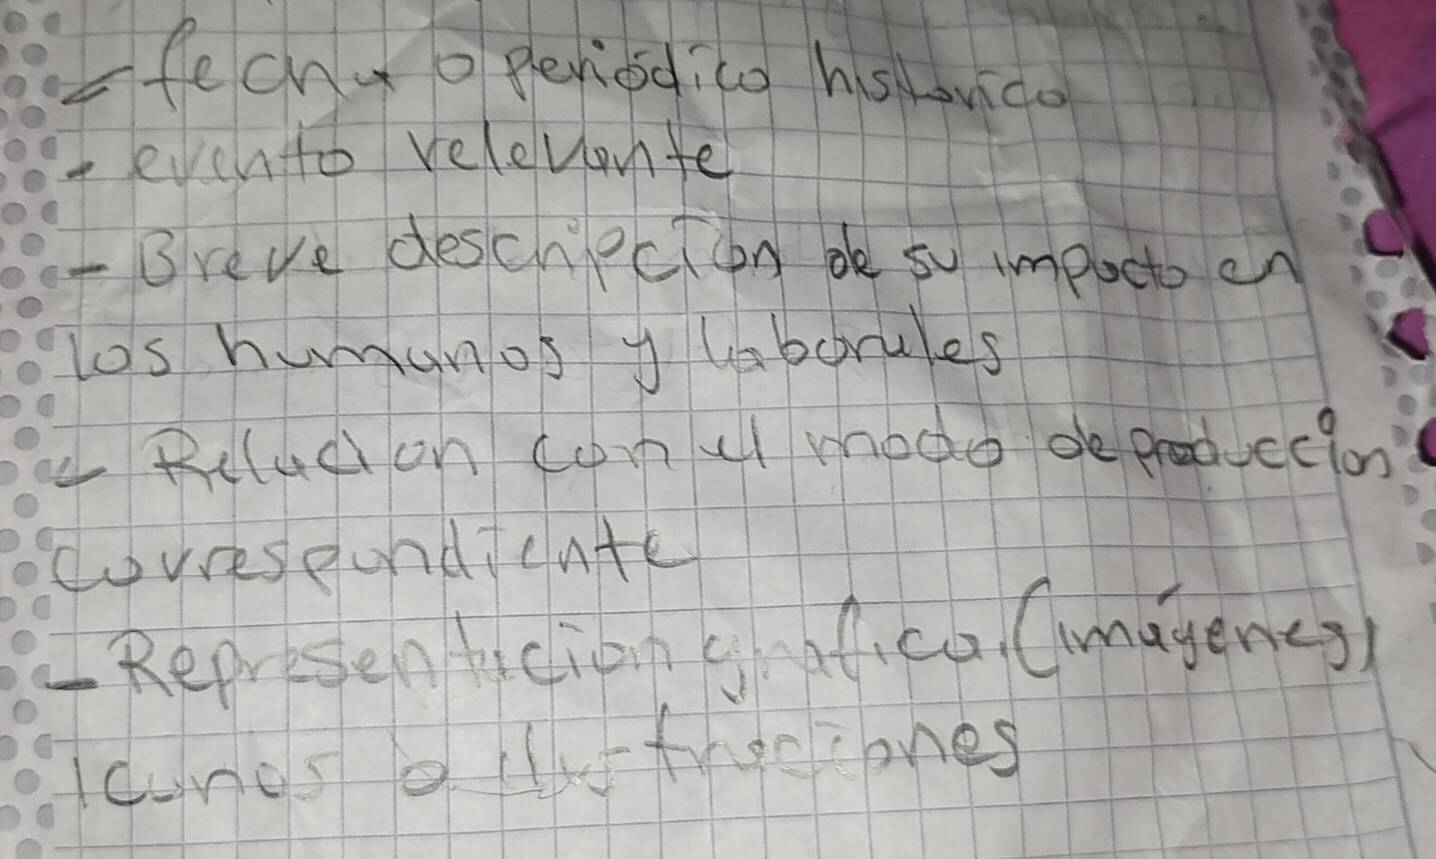 - fecha o periódico historico
- evento relevante
- Breve descripción de su impacto en
los humanos y laborales
- Relacion con el modo de produccion
correspondiente
- Representacion grafica. (imágenes)
iconos o ilustraciones